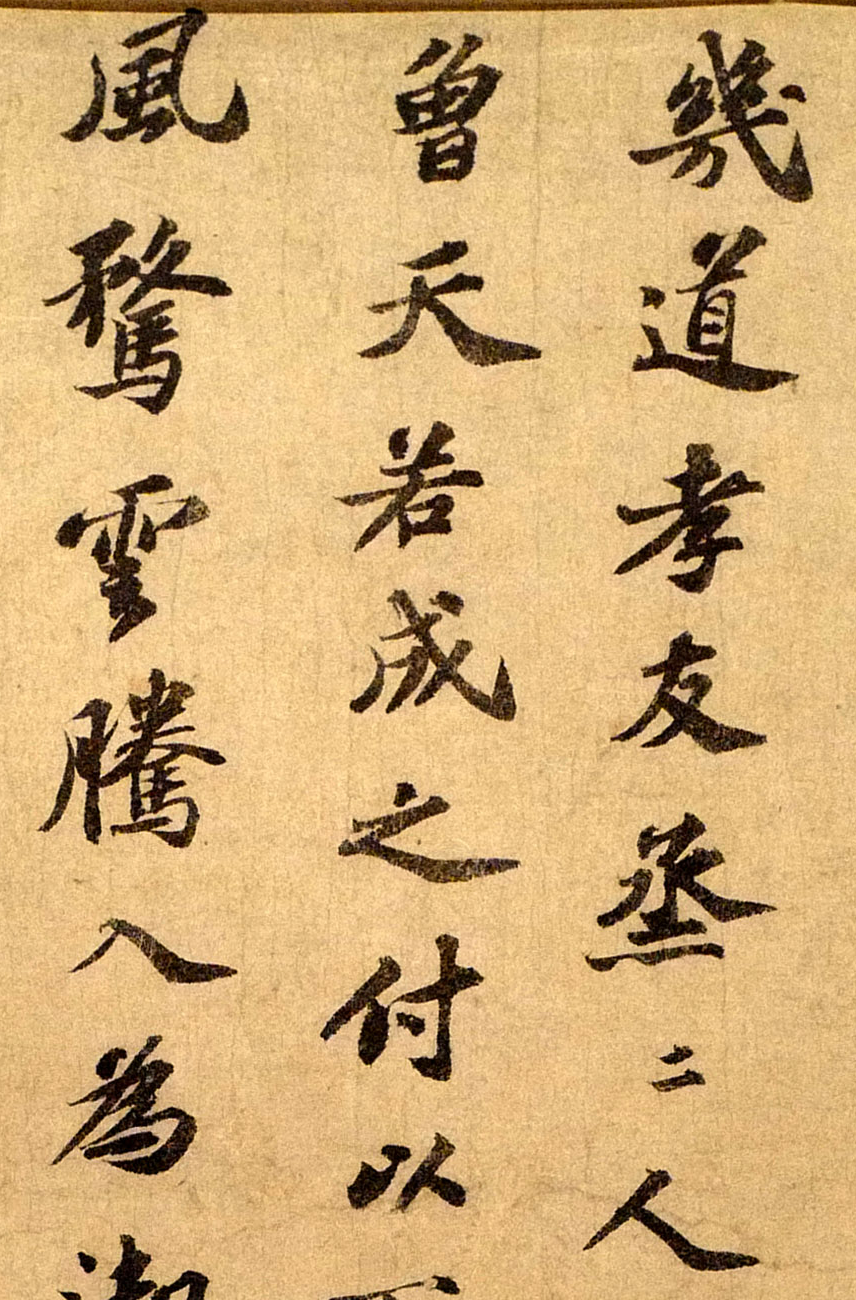 幾道孝友烝〻人
曾天若成之付以
風騖雲騰入為